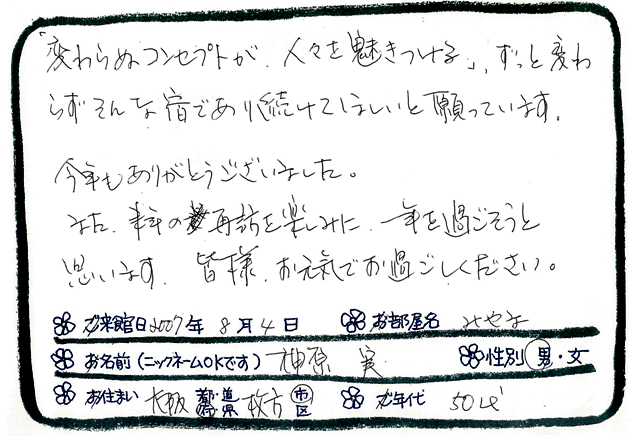 「変わらぬコンセプトが、人々を魅きつける」、ずっと変わ
らずそんな宿であり続けてほしいと願っています。
今年もありがとうございました。
また、来年の再訪を楽しみに、一年を過ごそうと
思います。皆様、お元気でお過ごしください。
ご来館日 2007年 8月4日 お部屋名
お名前(ニックネームOKです) 神原 実 性別 男・女
お住まい 大阪 都道府県 枚方 市区 ご年代 50代